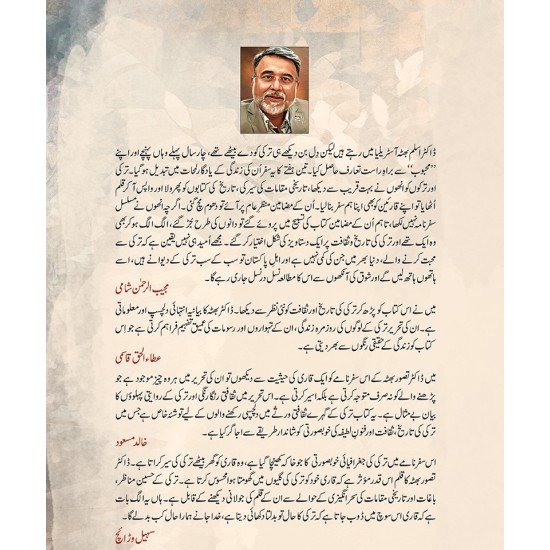 ڈاکٹر اسلم بھٹہ آسٹریلیا میں رہتے ہیں لیکن دل بن دیکھے ہی ترکی کو دے بیٹھے تھے، چار سال پہلے وہاں پہنچے اور اپنے
"محبوب" سے براہِ راست تعارف حاصل کیا۔ تین ہفتے کا یہ سفر اُن کی زندگی کے یادگار لمحات میں تبدیل ہو گیا۔ ترکی
اور ترکوں کو انھوں نے بہت قریب سے دیکھا، تاریخی مقامات کی سیر کی، تاریخ کی کتابوں کو پھرولا اور واپس آ کر قلم
اُٹھایا تو اپنے قارئین کو بھی اپنا ہم سفر بنا لیا۔ اُن کے مضامین منظرِ عام پر آئے تو دھوم مچ گئی۔ اگرچہ انھوں نے مسلسل
سفرنامہ نہیں لکھا، تاہم اُن کے مضامین کتاب کی تسبیح میں پروئے گئے تو دانوں کی طرح جُڑ گئے، الگ الگ ہو کر بھی
وہ ایک تھے اور ترکی کی تاریخ و ثقافت پر ایک دستاویز کی شکل اختیار کر گئے۔ مجھے اُمید ہی نہیں یقین ہے کہ ترکی سے
محبت کرنے والے، دنیا بھر میں جن کی کمی نہیں ہے اور اہلِ پاکستان تو سب کے سب ترکی کے دیوانے ہیں، اسے
ہاتھوں ہاتھ لیں گے اور شوق کی آنکھوں سے اس کا مطالعہ نسل در نسل جاری رہے گا۔
مجیب الرحمٰن شامی
میں نے اس کتاب کو پڑھ کر ترکی کی تاریخ اور ثقافت کو نئی نظر سے دیکھا۔ ڈاکٹر بھٹہ کا بیانیہ انتہائی دلچسپ اور معلوماتی
ہے۔ ان کی تحریر ترکی کے لوگوں کی روزمرہ زندگی، ان کے تہواروں اور رسومات کی عمیق تفہیم فراہم کرتی ہے جو اس
کتاب کو زندگی کے حقیقی رنگوں سے بھر دیتی ہے۔
عطاء الحق قاسمی
میں ڈاکٹر تصور بھٹہ کے اس سفرنامے کو ایک قاری کی حیثیت سے دیکھوں تو ان کی تحریر میں ہر وہ چیز موجود ہے جو
پڑھنے والے کو نہ صرف متوجہ کرتی ہے بلکہ اسیر کرتی ہے۔ اس تحریر میں ثقافتی رنگارنگی اور ترکی کے روایتی پہلوؤں کا
بیان بے مثال ہے۔ یہ کتاب ترکی کے گہرے ثقافتی ورثے میں دلچسپی رکھنے والوں کے لیے توشۂ خاص ہے جس میں
ترکی کی تاریخ، ثقافت اور فنونِ لطیفہ کی خوبصورتی کو شاندار طریقے سے اجاگر کیا ہے۔
خالد مسعود
اس سفرنامے میں ترکی کی جغرافیائی خوبصورتی کا جو خاکہ کھینچا گیا ہے، وہ قاری کو گھر بیٹھے ترکی کی سیر کراتا ہے۔ ڈاکٹر
تصور بھٹہ کا قلم اس قدر مؤثر ہے کہ قاری خود کو ترکی کی گلیوں میں گھومتا ہوا محسوس کرتا ہے۔ ترکی کے حسین مناظر،
باغات اور تاریخی مقامات کی سحر انگیزی کے حوالے سے ان کے قلم کی جولانی دیکھنے کے قابل ہے۔ ہاں یہ الگ بات
ہے کہ قاری اس سوچ میں ڈوب جاتا ہے کہ ترکی کا حال تو بدلتا دکھائی دیتا ہے، خدا جانے ہمارا حال کب بدلے گا۔
سہیل وڑائچ